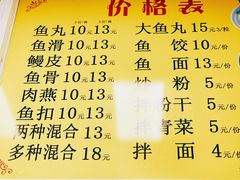 价格表
鱼丸10元13元 大鱼丸15元3/粒
鱼滑10元13元 鱼饺10元/份
鳗皮10元13元 鱼面13元/份
鱼骨10元13元 炒粉5元/份
肉燕10元13元 拌粉干5元/份
鱼扣10元13元 拌青菜5元/份
两种混合13元 拌面4元/份
多种混合18元